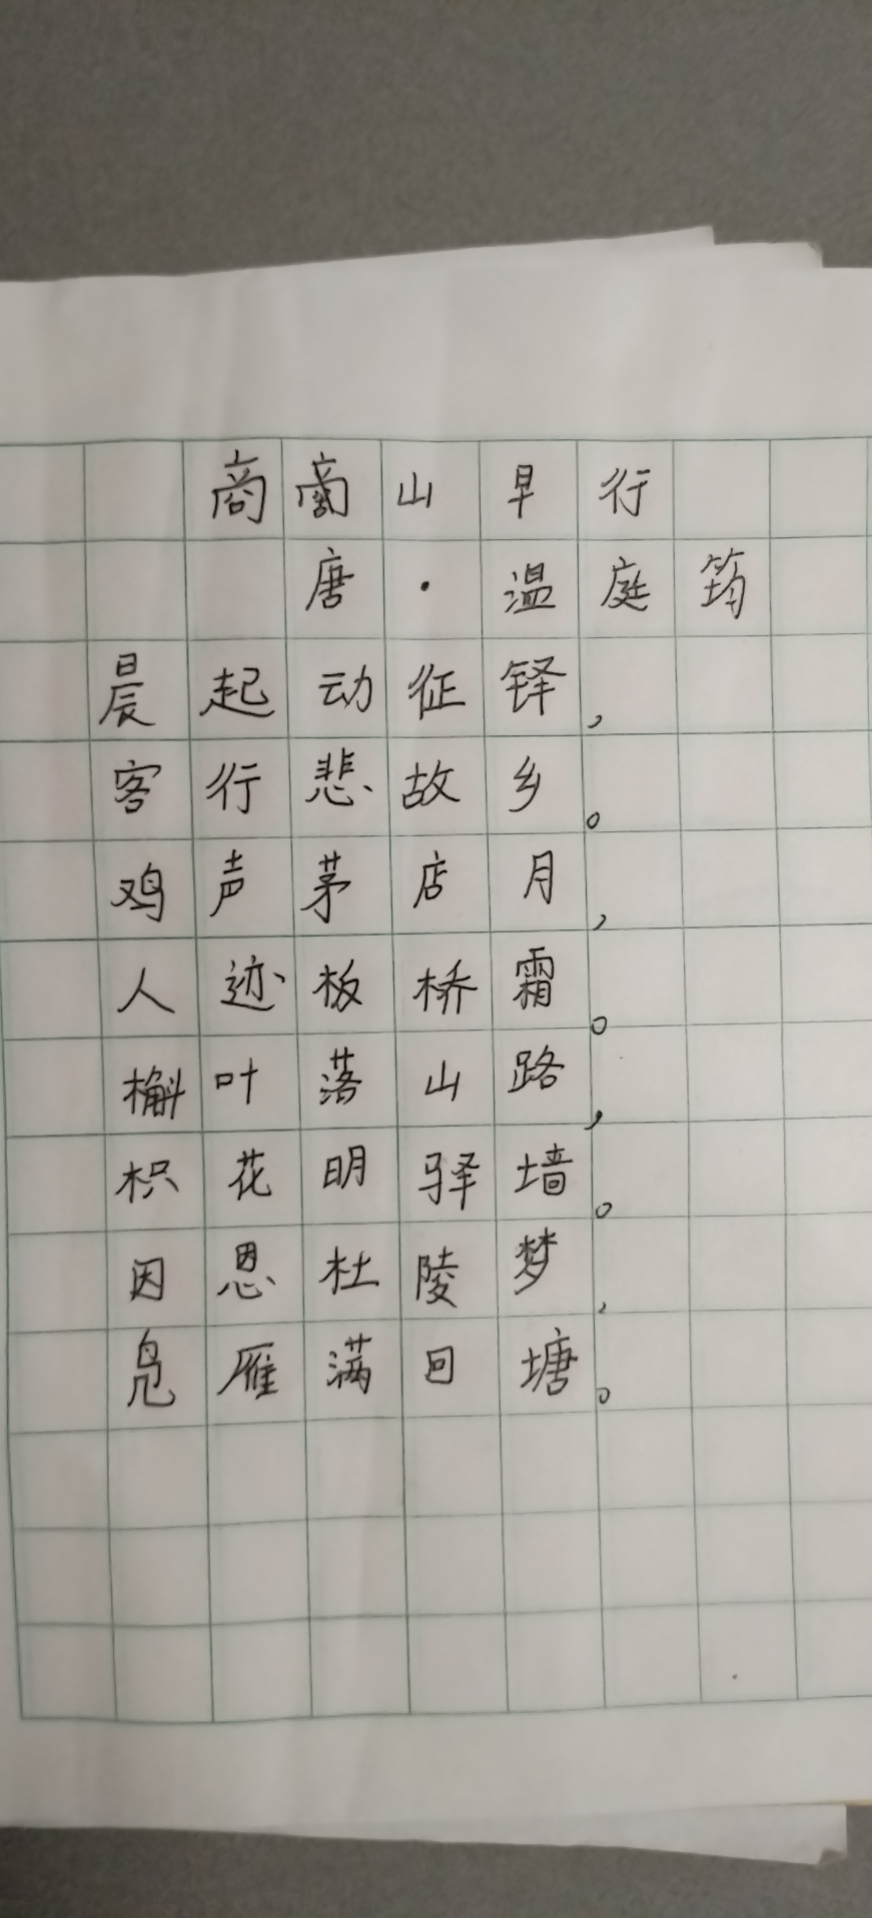 商商山早行
唐·温庭筠
晨起动征铎，
客行悲故乡。
鸡声茅店月，
人迹板桥霜。
槲叶落山路，
枳花明驿墙。
因恩杜陵梦，
凫雁满回塘。